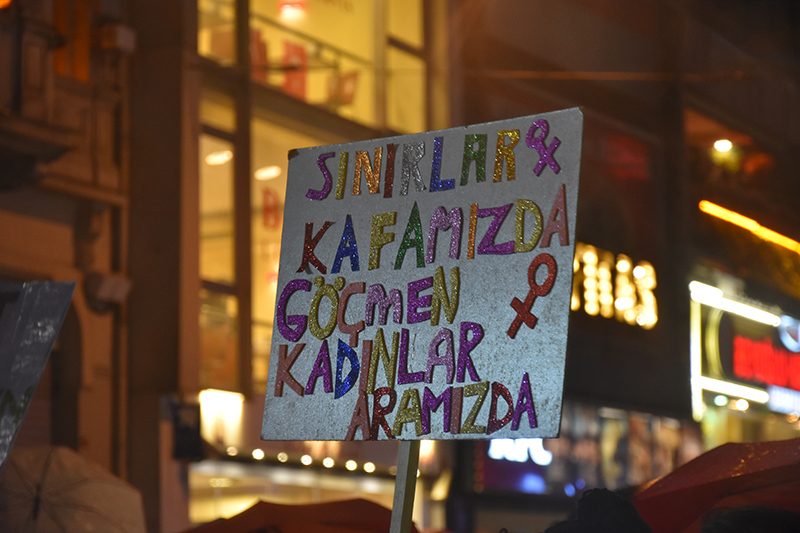 SINIRLAR
KAFAMIZDA
GÖÇMEN
KADINLAR
ARAMIZDA